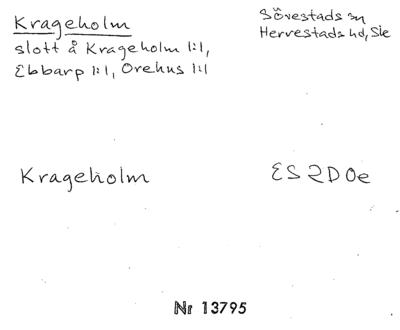 Krageholm
slott å Krageholm 1:1,
Ebbarp 1:1, Orehus 1:1
Sövestads sn
Herrestads hd, Sk
Krageholm
ES 2D 0e
Nr 13795